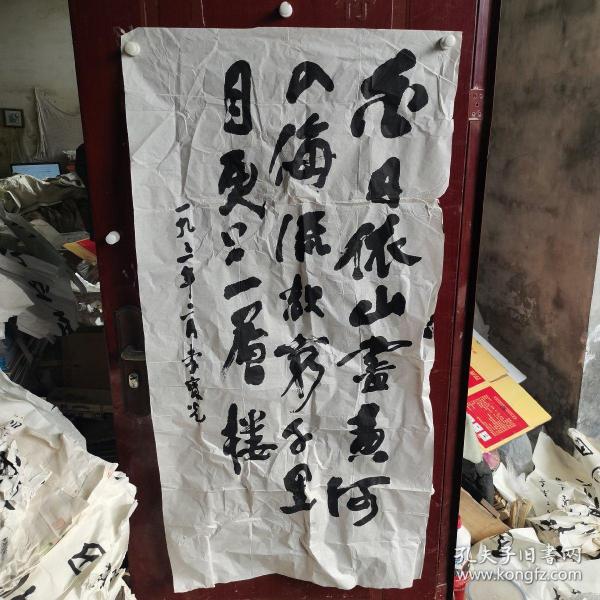 白日依山盡黄河
入海流欲穷千里
目更上一層楼
一九八二年二月李
孔夫子旧书网
www.kongfz.com